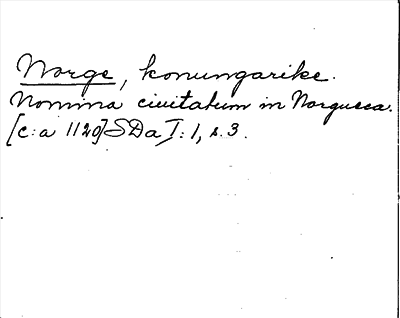 Norge, konungarike.
Nomina ciuitatum in Norguega.
[c:a 1120] SDa I:1, s. 3.